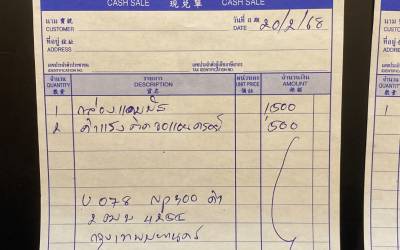 CASH SALE 現兌單 CASH SALE
นาม 寶號
CUSTOMER
วันที่ 日期
DATE 20/2/68
ที่อยู่ 住址
ADDRESS
เลขประจำตัวประชาชน
IDENTIFICATION NO.
เลขประจำตัวผู้เสียภาษีอากร
TAX IDENTIFICATION NO.
จำนวน
QUANTITY
數量
รายการ
DESCRIPTION
貨名
หน่วยละ
UNIT PRICE
價銀
จำนวนเงิน
AMOUNT
銀額
1 1500
2 ค่าแรงติดจอแอนดรอย์ 500
U 078 NP300 ดำ
2 ฒฆ 4255
กรุงเทพมหานคร
1